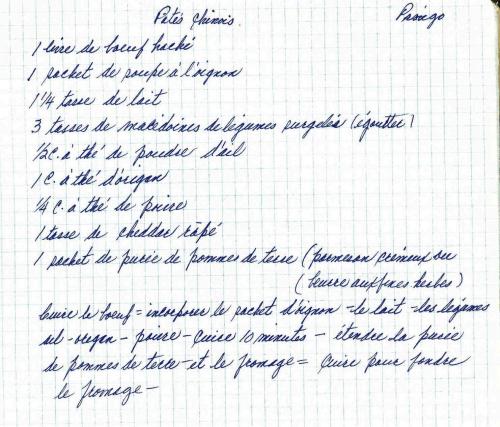 Patés Chinois Pasingo
1 livre de boeuf haché
1 sachet de soupe à l'oignon
1 1/4 tasse de lait
3 tasses de macédoines de légumes surgelés (égoutter)
1/2 c. à thé de poudre d'ail
1 c. à thé d'origan
1/4 c. à thé de poivre
1 tasse de cheddar râpé
1 sachet de purée de pommes de terre (parmesan crémeux ou
(beurre aux fines herbes)
Cuire le boeuf = incorporer le sachet d'oignon = le lait = les légumes
ail - oregan - poivre - cuire 10 minutes - étendre la purée
de pommes de terre - et le fromage = cuire pour fondre
le fromage -